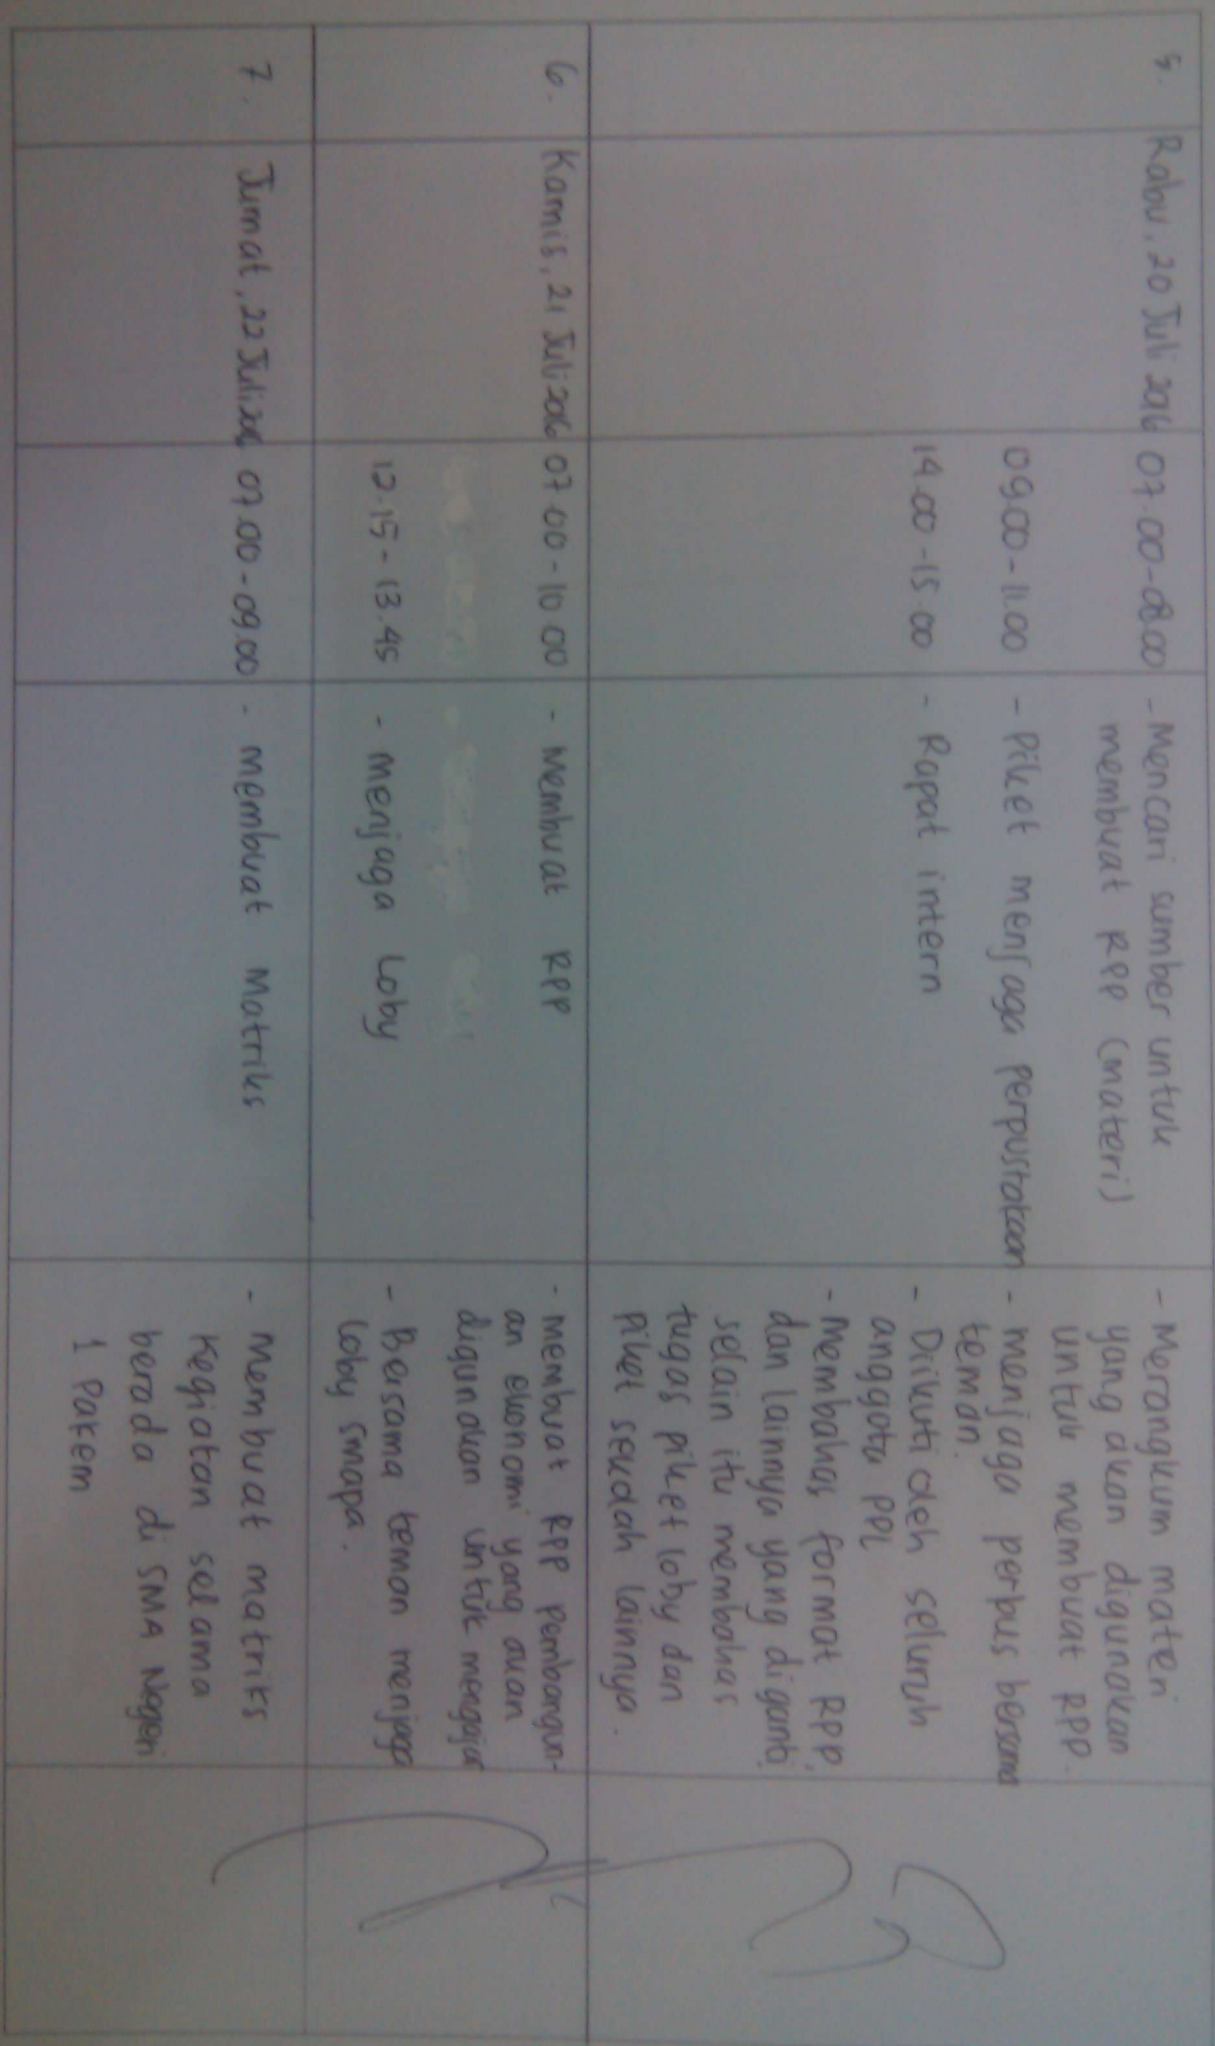 5. Rabu, 20 Juli 2016 07.00-08.00 - Mencari sumber untuk - Merangkum materi
membuat RPP (materi) yang akan digunakan
untuk membuat RPP.
09.00-11.00 - Piket menjaga perpustakaan - menjaga perpus bersama
teman.
14.00-15.00 - Rapat intern - Diikuti oleh seluruh
anggota PPL
- Membahas format RPP,
dan lainnya yang diganti,
selain itu membahas
tugas piket loby dan
piket seudah lainnya.
6. Kamis, 21 Juli 2016 07.00-10.00 - Membuat RPP - Membuat RPP pembangun-
an ekonomi yang akan
digunakan untuk mengajar
12.15-13.45 - Menjaga Loby - Bersama teman menjaga
loby smapa.
7. Jumat, 22 Juli 2016 07.00-09.00 - membuat Matriks - Membuat matriks
kegiatan selama
berada di SMA Negeri
1 Pakem